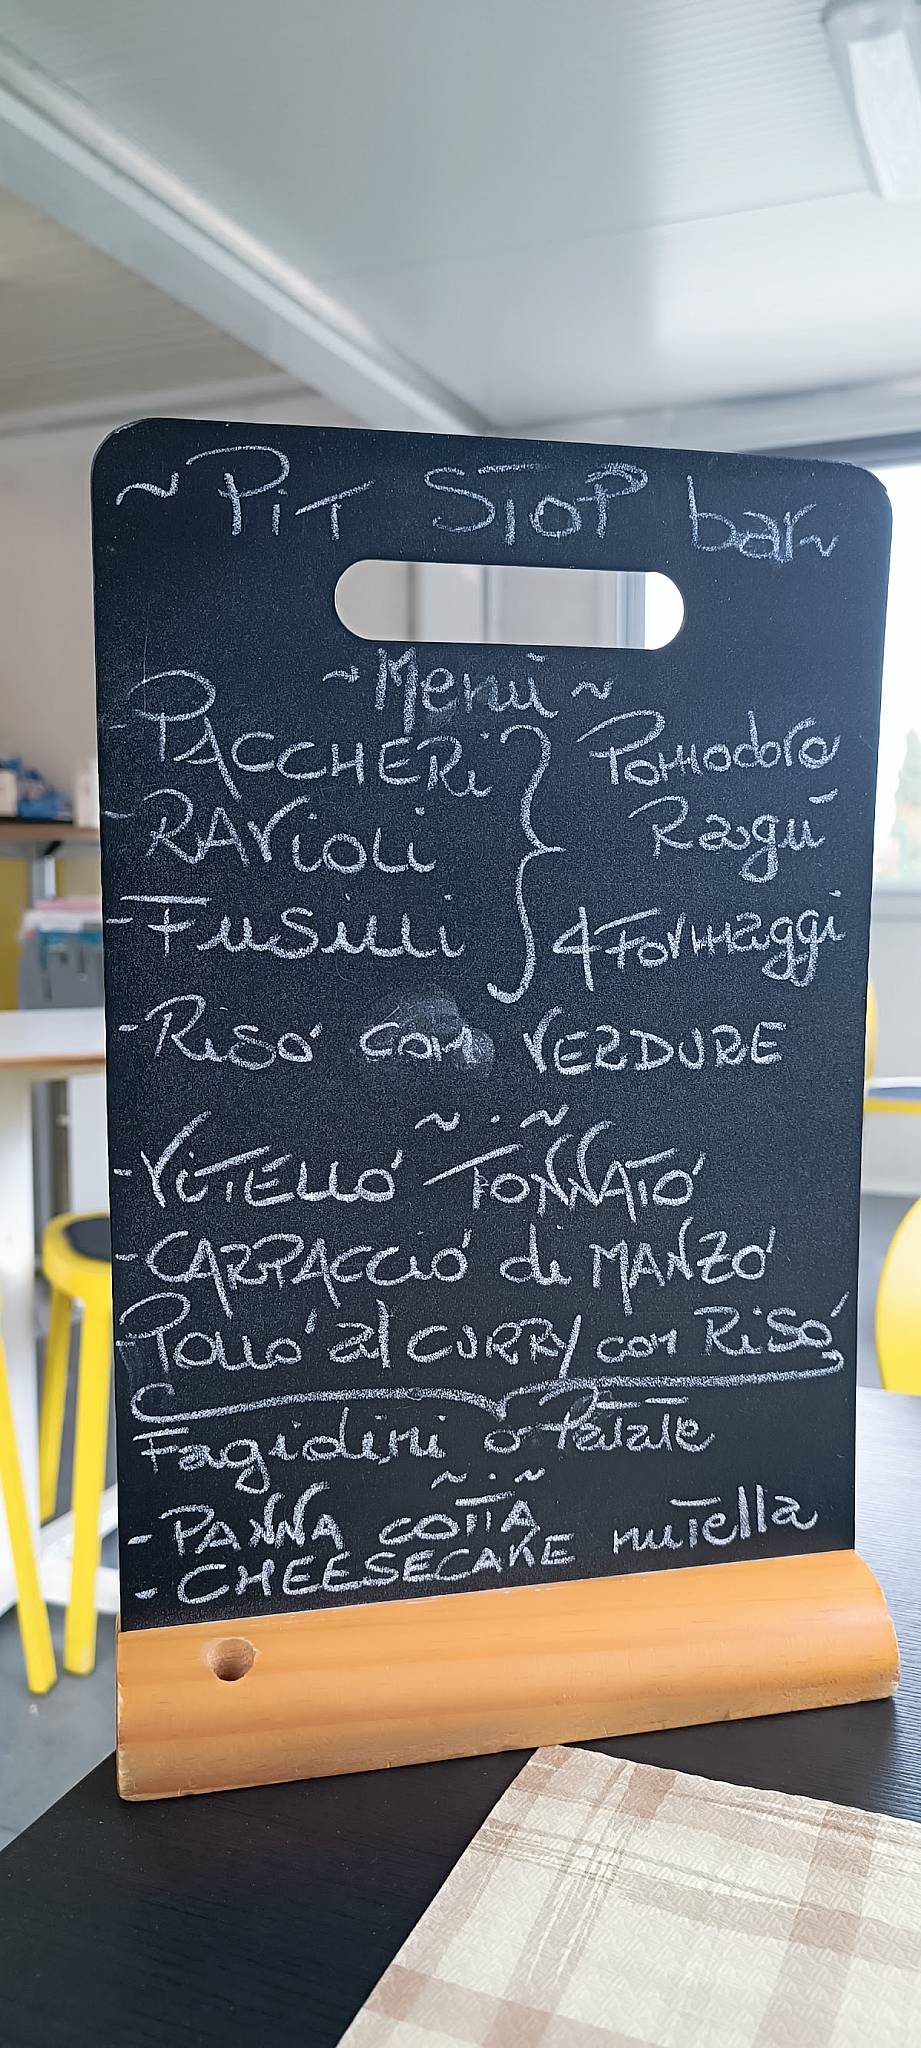 ~ PiT STOP bar ~
~ Menù ~
- PACCHERi } Pomodoro
- RAVioli Ragù
- Fusilli 4 Formaggi
- Riso con VERDURE
~ . ~
- ViTELLO TONNATO
- CARPACCIO di MANZO
- Pollo al CURRY con RiSO
Fagiolini o Patate
~ . ~
- PANNA COTTA
- CHEESECAKE nuTella